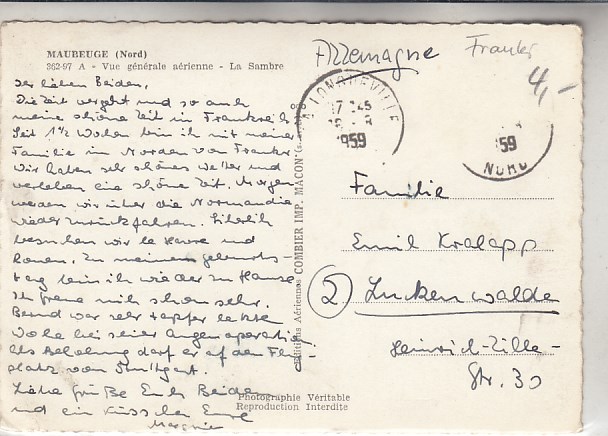 MAUBEUGE (Nord)
362-97 A - Vue générale aérienne - La Sambre
Allemagne
Ihr lieben Beiden,
Die Zeit vergeht und so auch
meine schöne Zeit in Frankreich
Seit 1½ Wochen bin ich mit meiner
Familie im Norden von Frankr.
Wir haben sehr schönes Wetter und
verleben eine schöne Zeit. Morgen
werden wir über die Normandie
wieder zurückfahren. Sicherlich
besuchen wir le Havre und
Rouen. Zu meinem Geburts-
tag bin ich wieder zu Hause
Ich freue mich schon sehr.
Bernd war sehr tapfer letzte
Woche bei seiner Augenoperation.
Als Belohnung darf er auf den Flug-
platz von Stuttgart.
Liebe Grüße Euch Beiden
und ein Küsschen Eure
LONGUEVILLE
1959
59
NORD
Editions Aériennes COMBIER IMP. MACON
Familie
Emil Kralapp
2 Luckenwalde
Heinrich-Zille-
Str. 30
4,-
Photographie Véritable
Reproduction Interdite